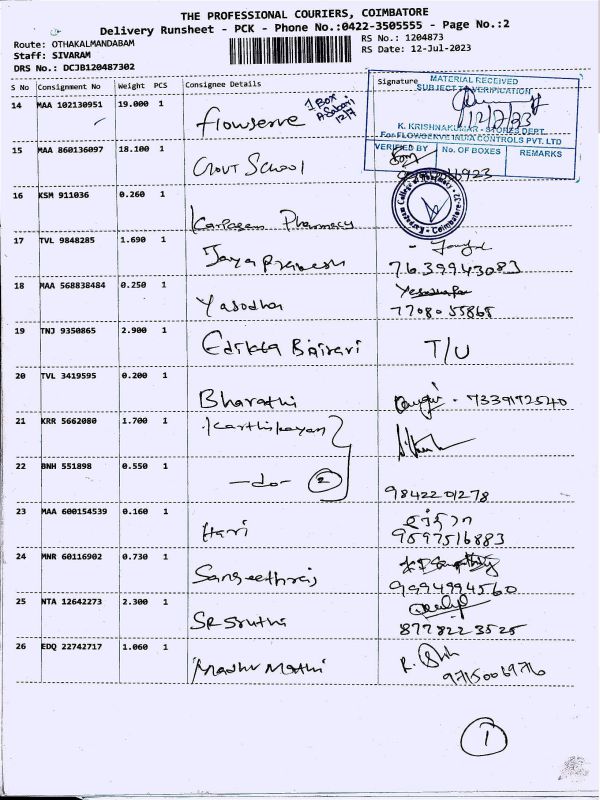 THE PROFESSIONAL COURIERS, COIMBATORE
Delivery Runsheet - PCK - Phone No.:0422-3505555 - Page No.:2
Route: OTHAKALMANDABAM
RS No.: 1204873
Staff: SIVARAM
RS Date: 12-Jul-2023
DRS No.: DCJB120487302
S No Consignment No Weight PCS Consignee Details Signature
MATERIAL RECEIVED
SUBJECT TO VERIFICATION
12/7/23
K. KRISHNAKUMAR - STORES DEPT.
For FLOWSERVE INDIA CONTROLS PVT. LTD
VERIFIED BY No. OF BOXES REMARKS
14 MAA 102130951 19.000 1 flowserve 1 Box
15 MAA 860136097 18.100 1 Govt School
16 KSM 911036 0.260 1 Karpagam Pharmacy
17 TVL 9848285 1.690 1 Jayaprakash
7639943083
18 MAA 568838484 0.250 1 Yasodha
7708055868
19 TNJ 9350865 2.900 1 Bairavi T/U
20 TVL 3419595 0.200 1 Bharathi 7339172540
21 KRR 5662080 1.700 1 Karthikeyan
22 BNH 551898 0.550 1 -do- 2
9842201278
23 MAA 600154539 0.160 1 Hari
9597516883
24 MNR 60116902 0.730 1 Sangeethraj
9994994560
25 NTA 12642273 2.300 1 SR Sruthi
8778223525
26 EDQ 22742717 1.060 1 Madhu Mathi
9715006976
1